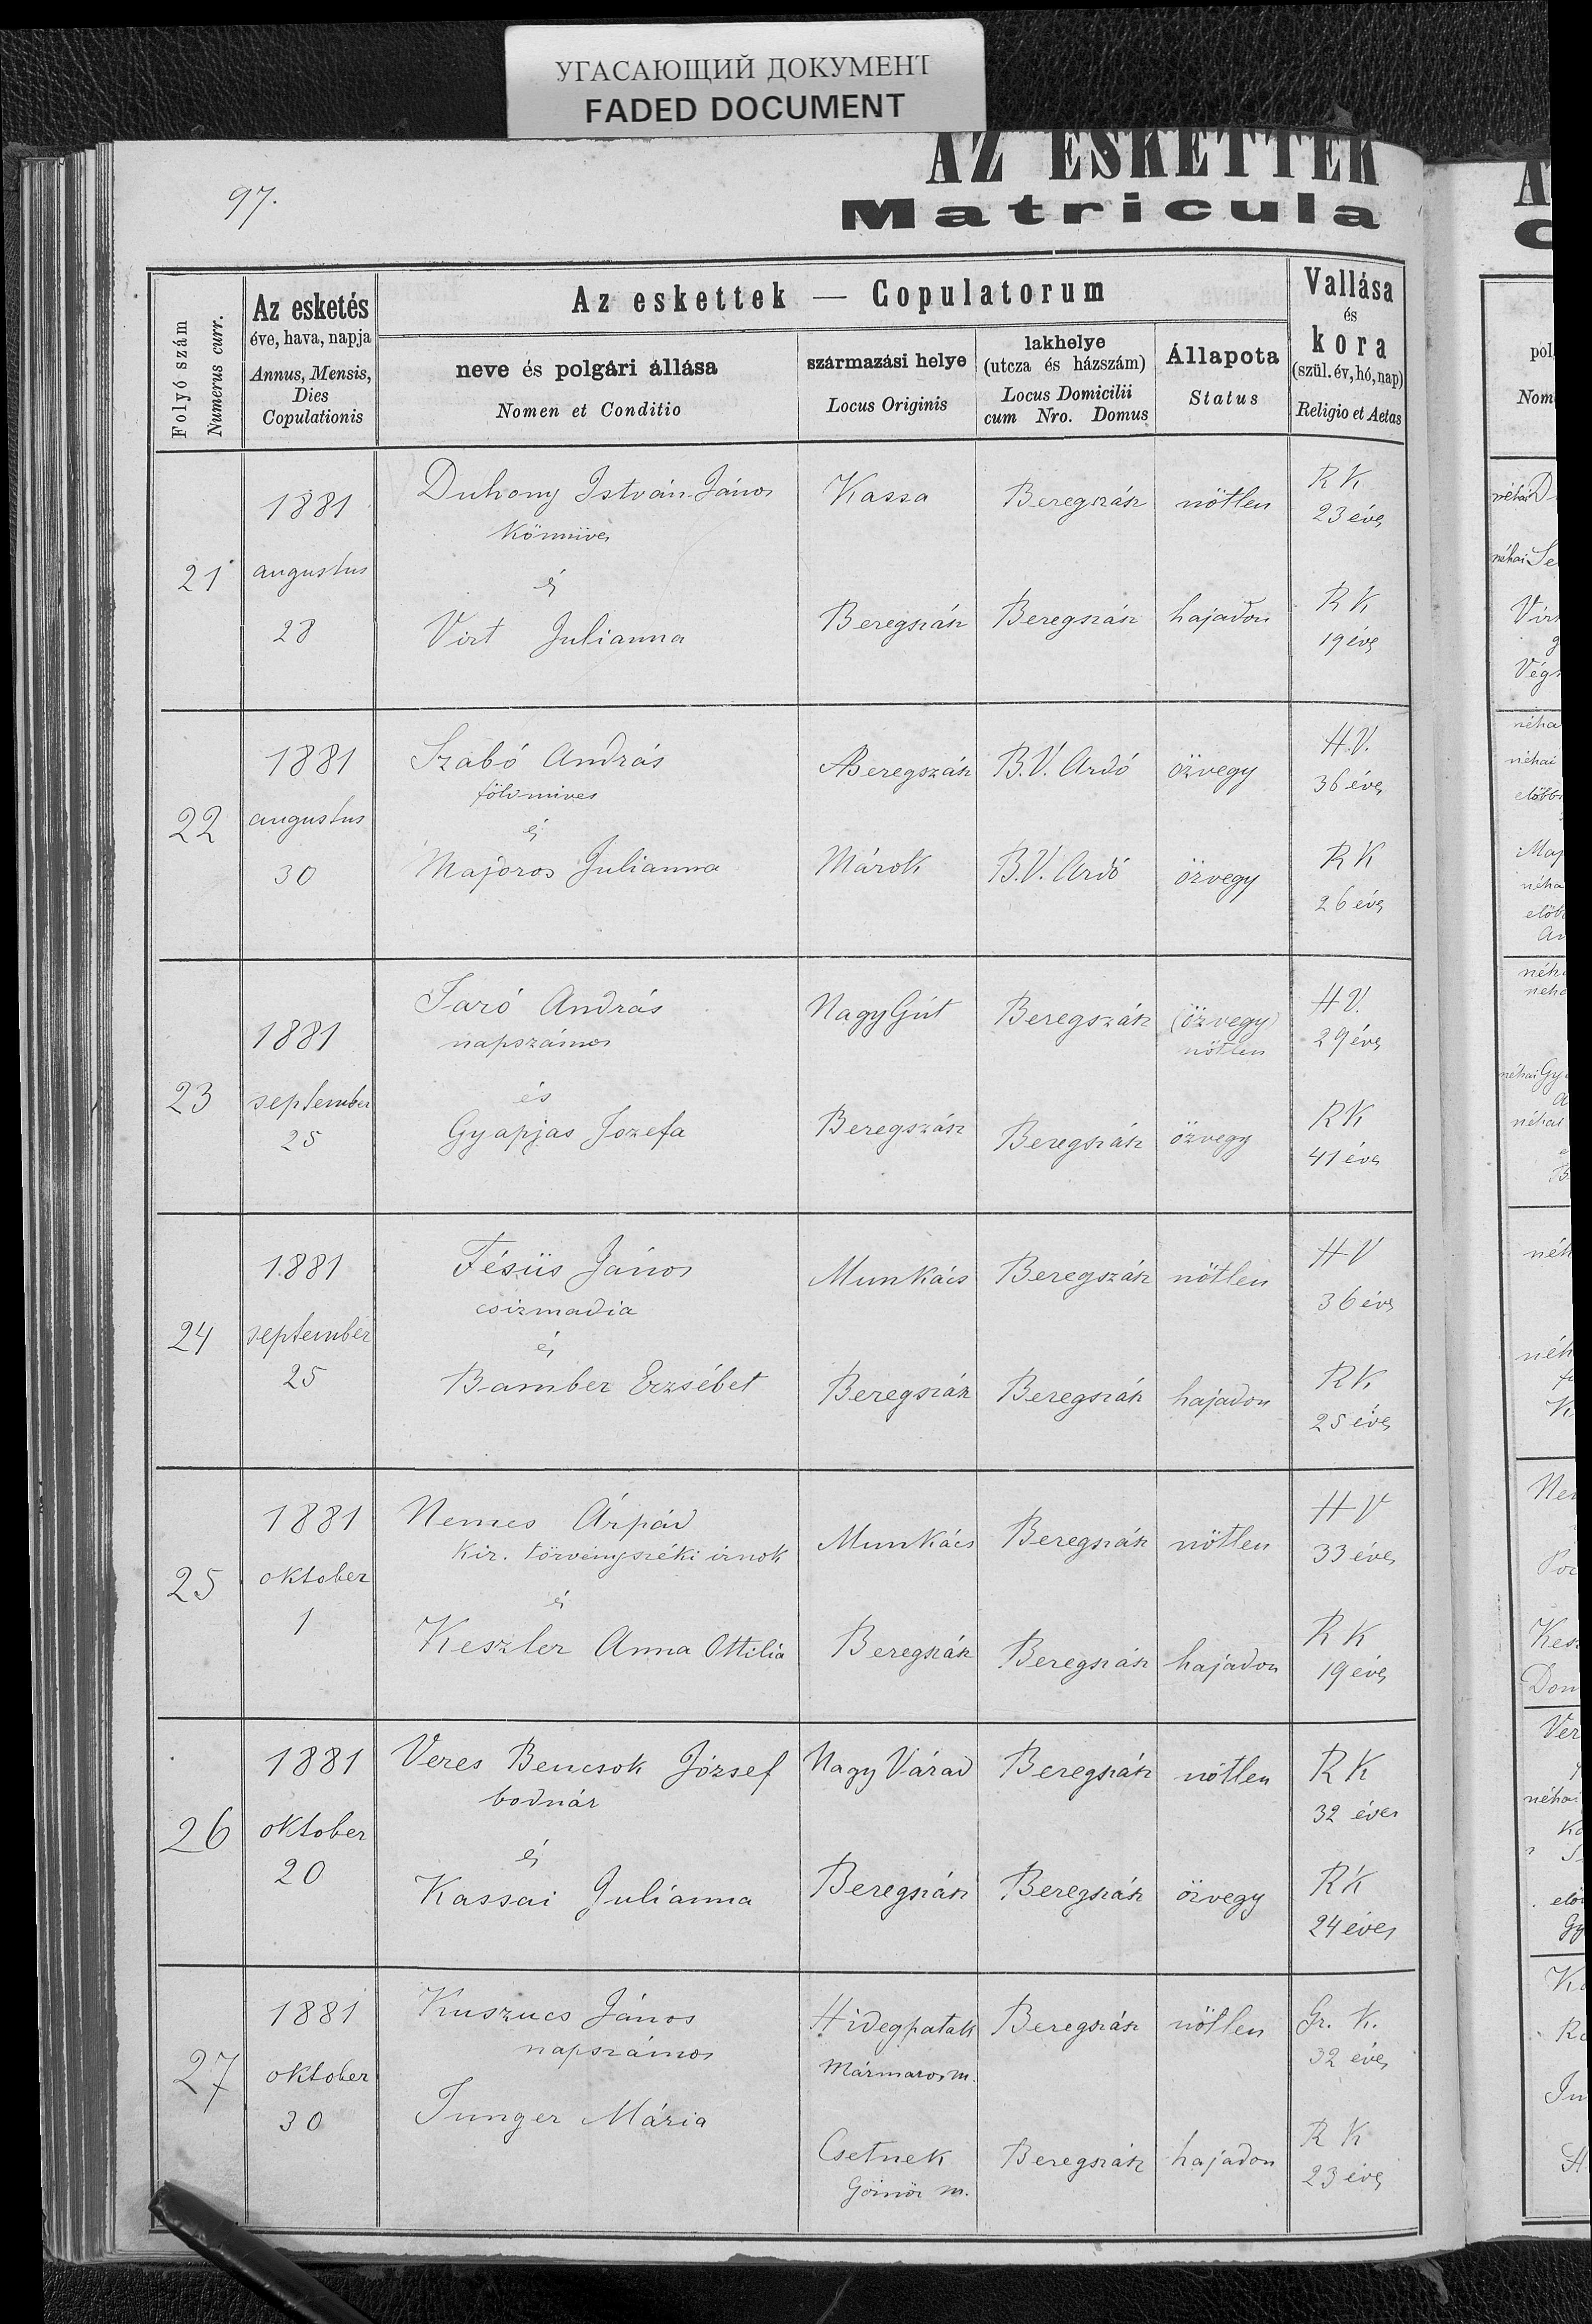 УГАСАЮЩИЙ ДОКУМЕНТ
FADED DOCUMENT
97.
AZ ESKETTEK
Matricula
Folyó szám
Numerus curr.
Az esketés
éve, hava, napja
Annus, Mensis,
Dies
Copulationis
Az eskettek — Copulatorum
neve és polgári állása
Nomen et Conditio
származási helye
Locus Originis
lakhelye
(utcza és házszám)
Locus Domicilii
cum Nro. Domus
Állapota
Status
Vallása
és
kora
(szül. év, hó, nap)
Religio et Aetas
21
1881
augustus
28
Duhony István János
Kőműves
és
Virt Julianna
Kassa
Beregszász
Beregszász
Beregszász
nötlen
hajadon
R K
23 éves
R K
19 éves
22
1881
augustus
30
Szabó András
földmives
és
Majoros Julianna
Beregszász
Márok
B.V. Ardó
B.V. Ardó
özvegy
özvegy
H.V.
36 éves
R K
26 éves
23
1881
september
25
Taró András
napszámos
és
Gyapjas Jozefa
Nagy Gút
Beregszász
Beregszász
Beregszász
(özvegy)
nötlen
özvegy
H V.
29 éves
R K
41 éves
24
1881
september
25
Fésüs János
csizmadia
és
Bamber Erzsébet
Munkács
Beregszász
Beregszász
Beregszász
nötlen
hajadon
H V
36 éves
R K
25 éves
25
1881
oktober
1
Nemes Árpád
kir. törvényszéki irnok
és
Keszler Anna Ottilia
Munkács
Beregszász
Beregszász
Beregszász
nötlen
hajadon
H V
33 éves
R K
19 éves
26
1881
oktober
20
Veres Bencsok József
bodnár
és
Kassai Julianna
Nagy Várad
Beregszász
Beregszász
Beregszász
nötlen
özvegy
R K
32 éves
R K
24 éves
27
1881
oktober
30
Kuszucs János
napszámos
Junger Mária
Hidegpatak
Mármaros m.
Csetnek
Gömör m.
Beregszász
Beregszász
nötlen
hajadon
Gr. K.
32 éves
R K
23 éves